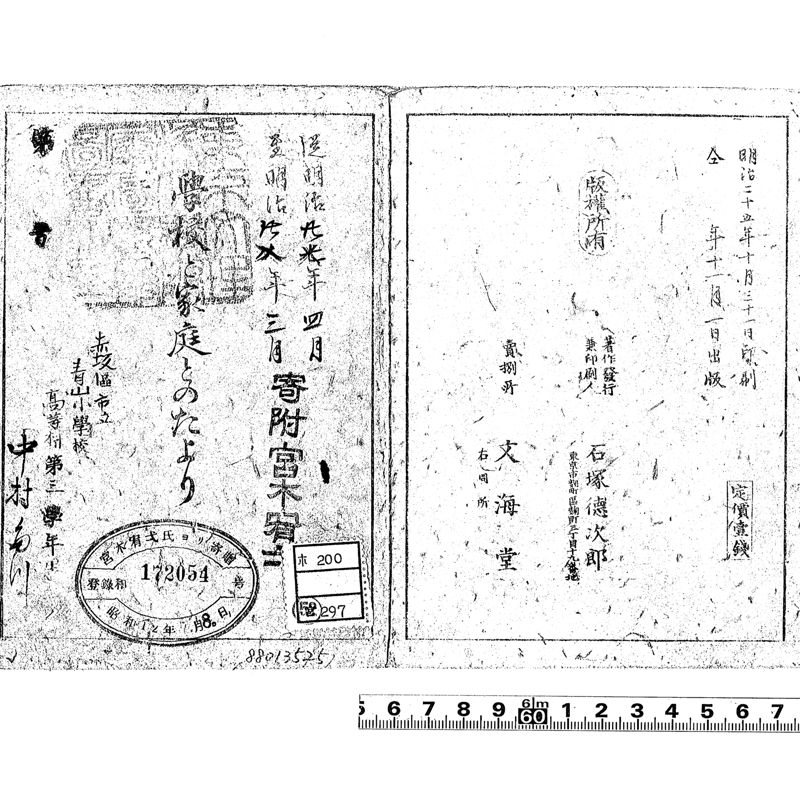 明治二十五年十月三十一日印刷
仝 年十一月一日出版
定價壹錢
版權所有
著作發行
兼印刷人
石塚德次郎
東京市麹町區麹町三丁目十九番地
賣捌所
文海堂
右同所
從明治廿九年四月
至明治年三月
寄附宮木宥弌
學校と家庭とのたより
第 号
赤坂區市立
青山小學校
高等科第三學年生
中村
宮木宥弌氏ヨリ寄贈
登錄和 172054 号
昭和12年7月8日
ホ 200
297
88013525
5 6 7 8 9 6m 60 1 2 3 4 5 6 7